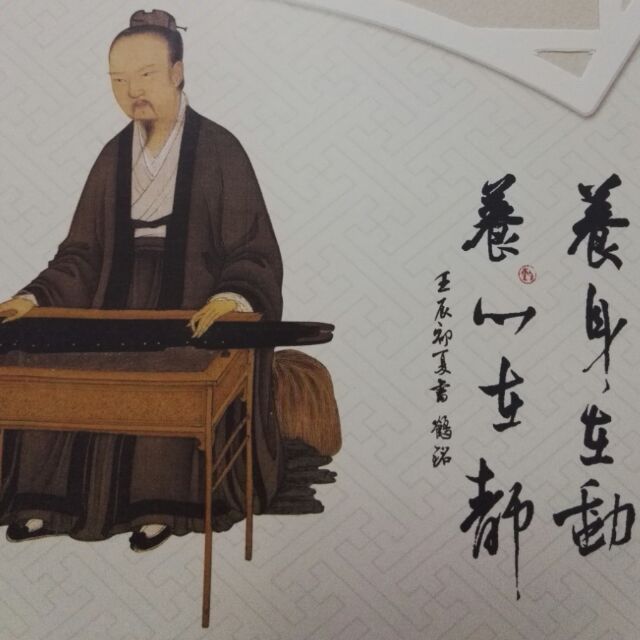 養身在動
養心在靜
壬辰初夏書 鶴銘